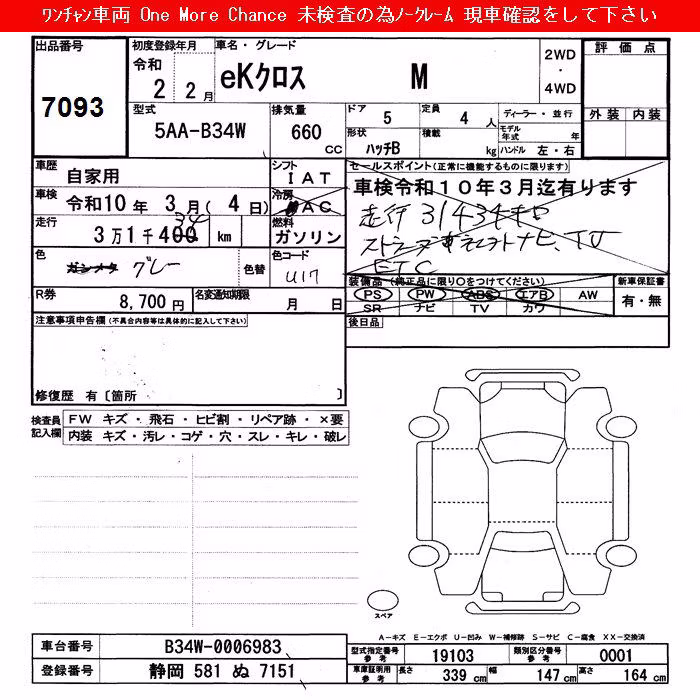 ﾜﾝﾁｬﾝ車両 One More Chance 未検査の為ﾉｰｸﾚｰﾑ 現車確認をして下さい
出品番号
7093
初度登録年月
令和
2 2月
車名・グレード
eKクロス M
2WD
・
4WD
評価点
外装 内装
型式
5AA-B34W
排気量
660
CC
ドア
5
定員
4 人
形状
ハッチB
積載
kg
ディーラー・並行
モデル年式 年
ハンドル 左・右
車歴
自家用
シフト
IAT
車検
令和10年 3月( 4日)
冷房
AC
走行
3万1千400 km
34
燃料
ガソリン
色
ガンメタ グレー
色替
色コード
U17
R券
8,700円
名変通知期限
月 日
セールスポイント(正常に機能するものに限ります)
車検令和10年3月迄有ります
走行 31434キロ
ナビ、TV
ETC
装備品(純正品に限り○をつけてください)
PS PW ABS エアB AW
SR ナビ TV カワ
新車保証書
有・無
後日品
注意事項申告欄(不具合内容等は具体的に記入して下さい)
修復歴 有〔箇所 〕
検査員記入欄
FW キズ・飛石・ヒビ割・リペア跡・×要
内装 キズ・汚レ・コゲ・穴・スレ・キレ・破レ
スペア
A-キズ E-エクボ U-凹み W-補修跡 S-サビ C-腐食 XX-交換済
車台番号
B34W-0006983
登録番号
静岡 581 ぬ 7151
型式指定番号
参考
19103
類別区分番号
参考
0001
車庫証明用
参考
長さ
339 cm
幅
147 cm
高さ
164 cm